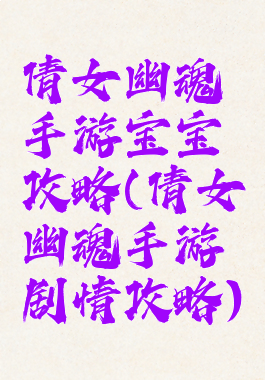 倩女幽魂
手游宝宝
攻略(倩女
幽魂手游
剧情攻略)